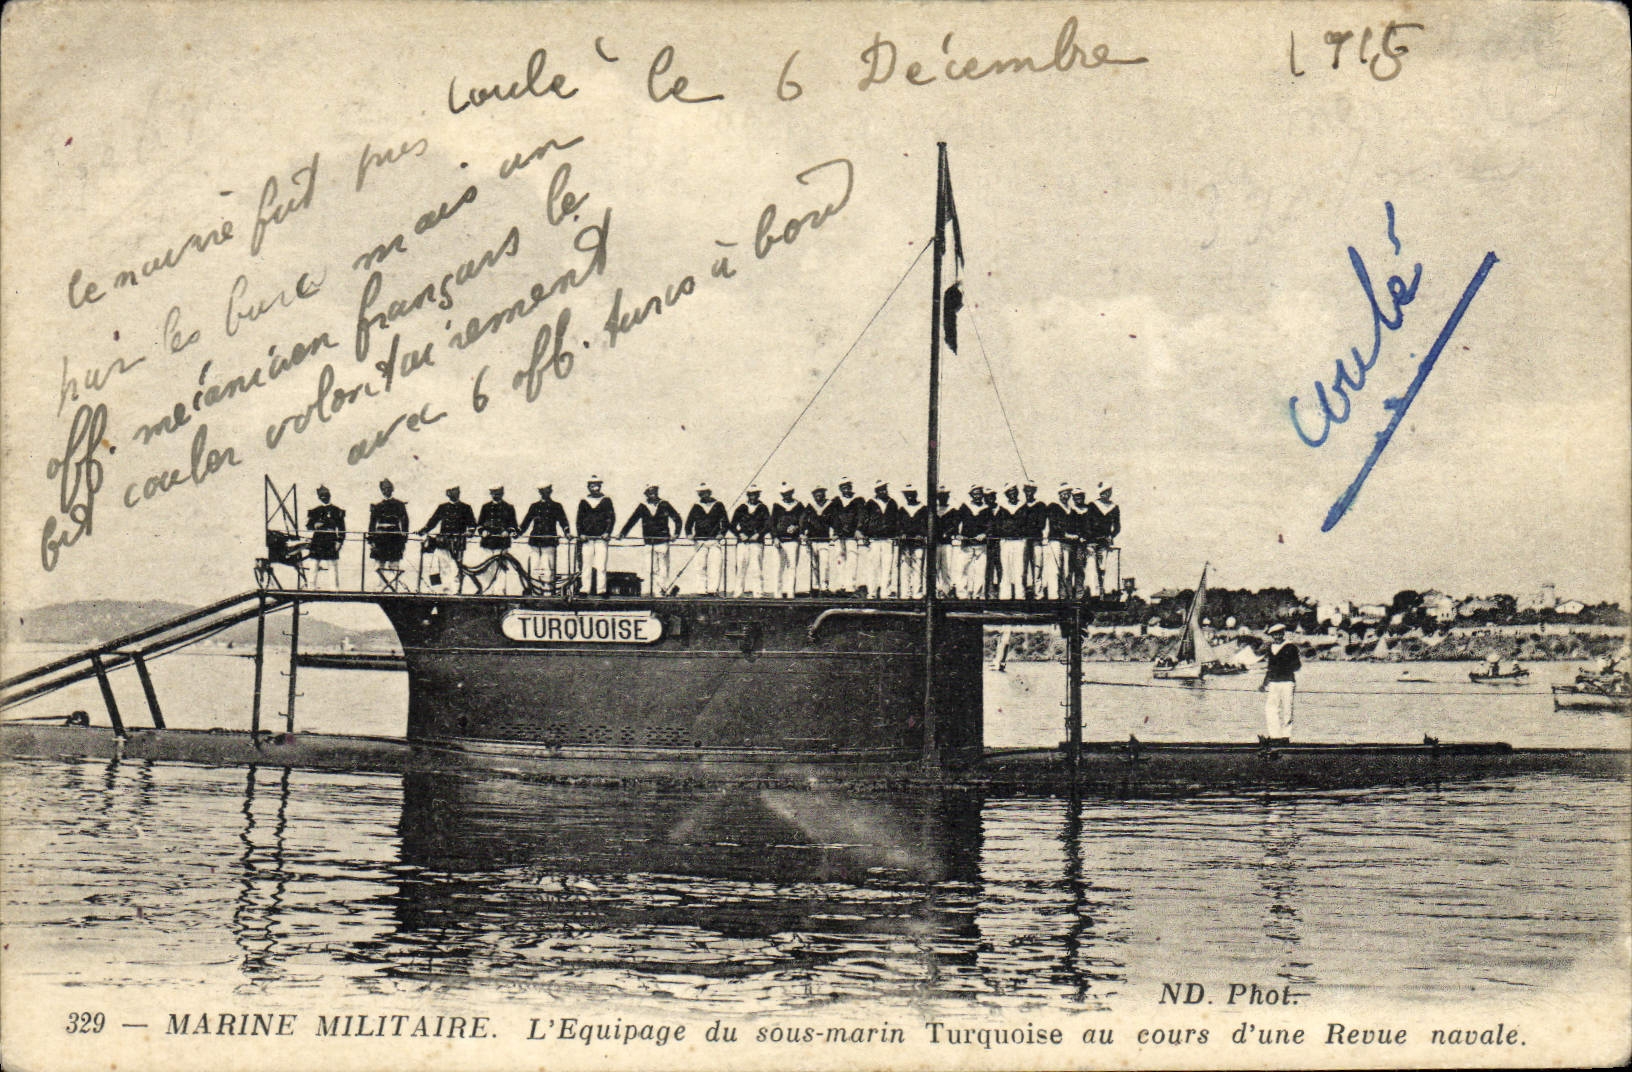 coulé le 6 Décembre 1915
le navire fut pris
par les turcs mais un
off. mécanicien français le
fit couler volontairement
avec 6 off. turcs à bord
coulé
TURQUOISE
ND. Phot.
329 — MARINE MILITAIRE. L'Equipage du sous-marin Turquoise au cours d'une Revue navale.